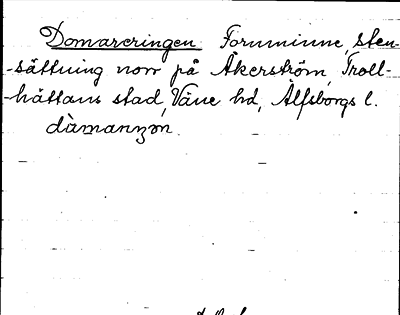 Domareringen Fornminne, sten-
-sättning norr på Åkerström, Troll-
-hättans stad, Väne hd, Älfsborgs l.
dàmanzɷn.